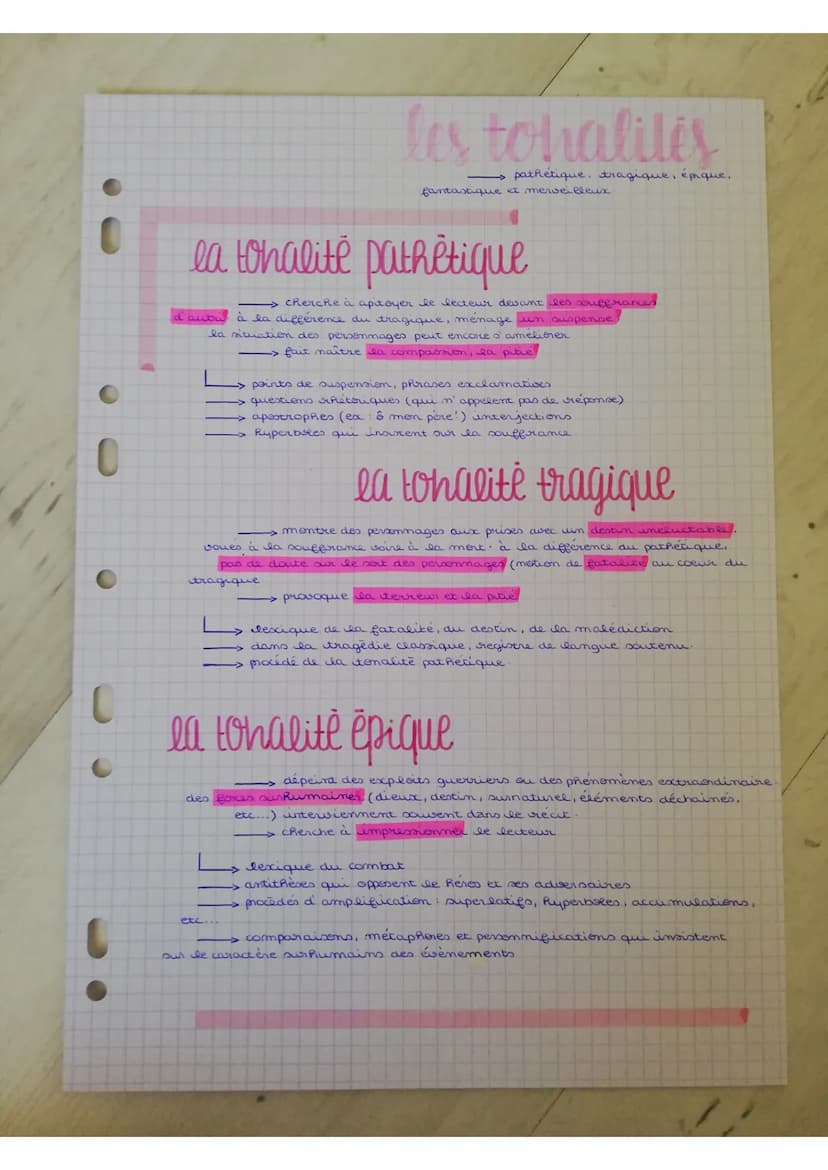 les tonalités
→ pathétique, tragique, épique,
fantastique et merveilleux
la tonalité pathétique
→ cherche à apitoyer le lecteur devant les souffrances
d'autrui à la différence du tragique, ménage un suspense
la situation des personnages peut encore s'améliorer
→ fait naître la compassion, la pitié
→ points de suspension, phrases exclamatives
→ questions rhétoriques (qui n'appelent pas de réponse)
→ apostrophes (ex : ô mon père!) interjections
→ hyperboles qui insistent sur la souffrance
la tonalité tragique
→ montre des personnages aux prises avec un destin inéluctable,
voués à la souffrance voire à la mort. à la différence du pathétique,
pas de doute sur le sort des personnages (notion de fatalité) au coeur du
tragique
→ provoque la terreur et la pitié
→ lexique de la fatalité, du destin, de la malédiction
→ dans la tragédie classique, registre de langue soutenu.
→ procédé de la tonalité pathétique.
la tonalité épique
→ dépeint des exploits guerriers ou des phénomènes extraordinaire
des forces surhumaines (dieux, destin, surnaturel, éléments déchainés,
etc...) interviennent souvent dans le récit.
→ cherche à impressionner le lecteur
→ lexique du combat
→ antithèses qui opposent le héros et ses adversaires
→ procédés d'amplification : superlatifs, hyperboles, accumulations,
etc...
→ comparaisons, métaphores et personnifications qui insistent
sur le caractère surhumains des évènements